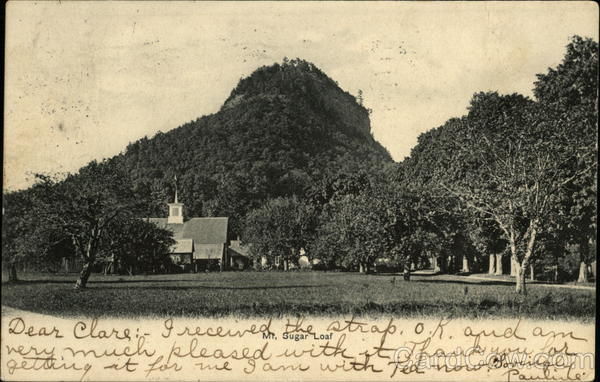 Mt. Sugar Loaf
Dear Clare:- I received the strap. O.K. and am
very much pleased with it. Thank you for
getting it for me I am with Ted now. Love from
Pauline
CardCow.com